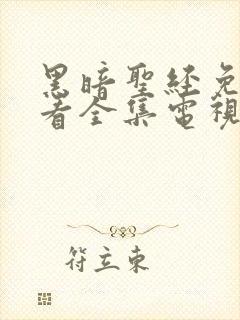 黑暗聖經免
看全集電視
符立東